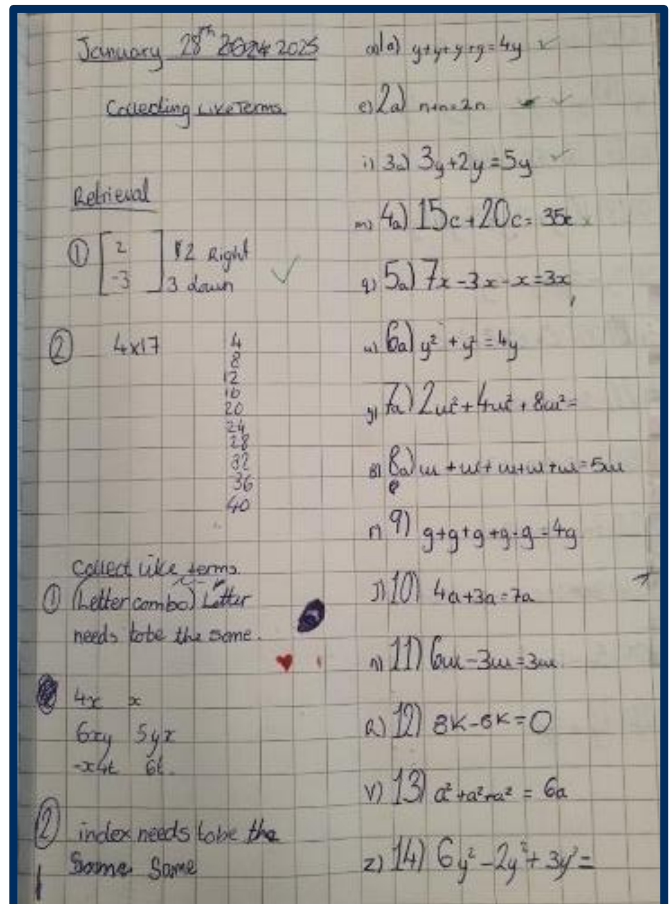 January 28th 2024 2025
Collecting Like Terms
Retrieval
① [2 -3] 2 Right
3 down
② 4x17
4
8
12
16
20
24
28
32
36
40
Collect like terms.
① (Letter combo) Letter
needs to be the same.
4x x
6xy 5yx
-x4t 6t.
② index needs to be the
Same Same
a) y+y+y+y=4y
e) 2a) n+n=2n
i) 3a) 3y+2y=5y
m) 4a) 15c+20c=35c
q) 5a) 7x-3x-x=3x
u) 6a) y² + y² = 4y
y) 7a) 2w²+4w²+8w²=
B) 8a) w+w+w+w+w=5w
9) g+g+g+g-g=4g
J) 10) 4a+3a=7a
11) 6w-3w=3w
12) 8K-8K=0
V) 13) a²+a²+a² = 6a
z) 14) 6y²-2y²+3y²=